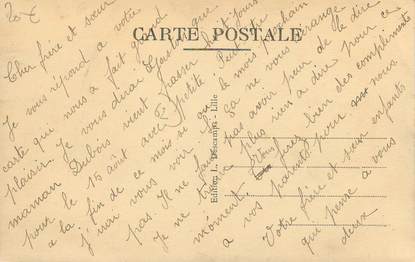 20 €
CARTE POSTALE
Cher frère et sœur
Je vous répond a votre
carte qui nous a fait grand
plaisir. Je vous dirai que
maman Dubois vient passer huit jours
pour le 15 aout avec petite Peut etre
a la fin de ce mois si le mois prochain
j'irai vous voir si ça ne vous dérange
pas Il ne faut pas avoir peur de le dire
Je ne trouve plus rien a dire pour ce
moment Vous ferez bien des compliment
a vos parents pour nous
Votre frère et seur enfants
qui pense a vous
deux
Edition L. Descamps - Lille